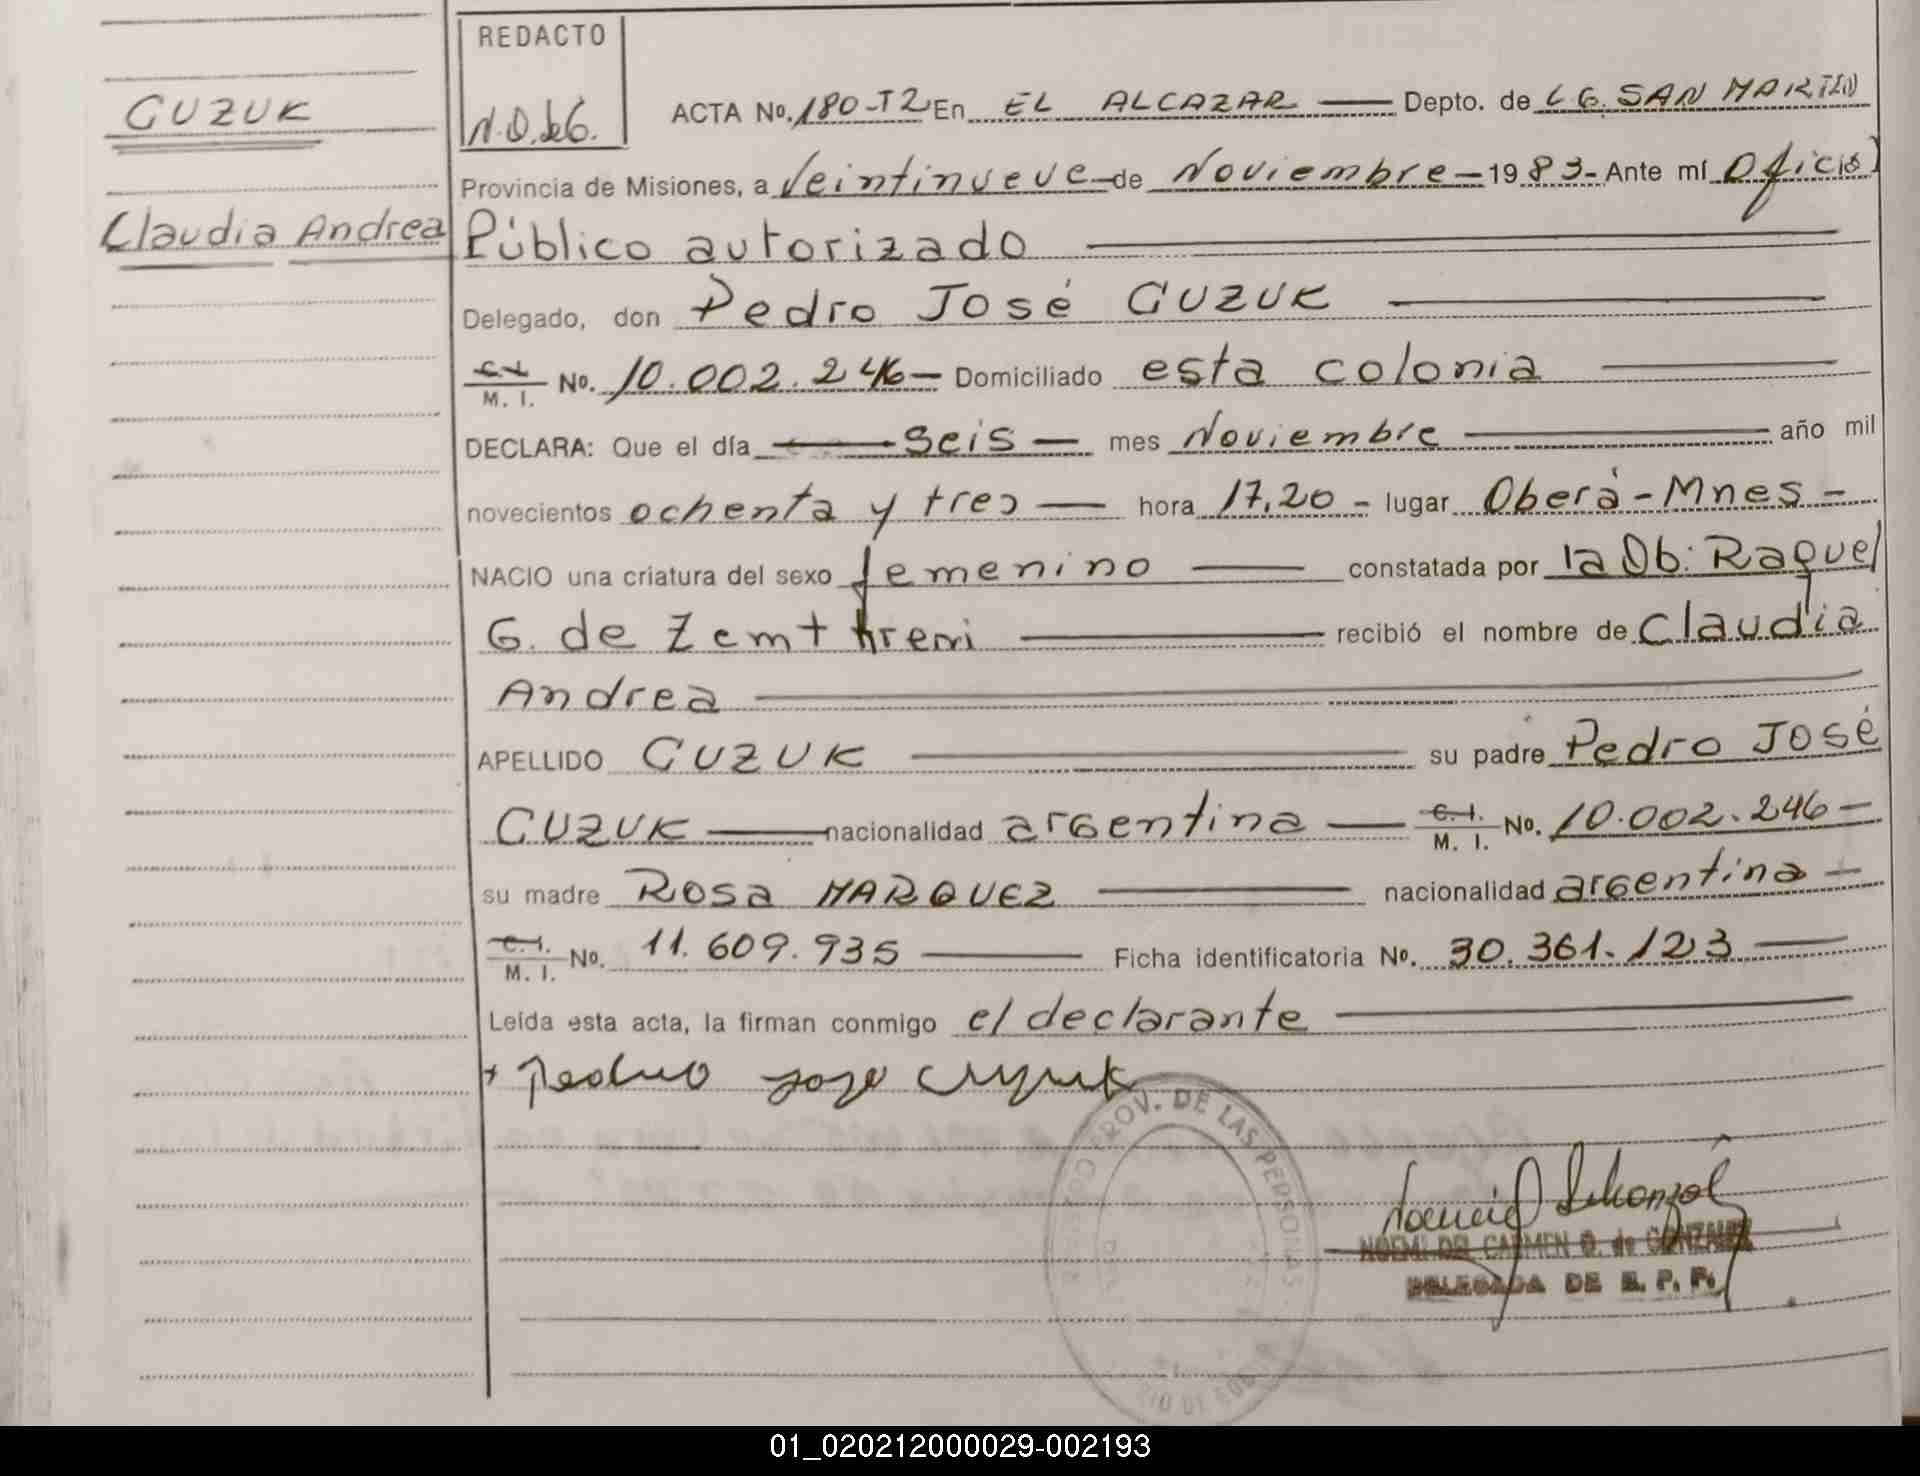 REDACTO
N.O.deG.
GUZUK
Claudia Andrea
ACTA No. 180-T2 En EL ALCAZAR Depto. de L.G. SAN MARTIN
Provincia de Misiones, a Veintinueve de Noviembre - 1983 - Ante mí Oficial
Público autorizado
Delegado, don Pedro José GUZUK
C.I. M. I. No. 10.002.246 - Domiciliado esta colonia
DECLARA: Que el día seis - mes Noviembre año mil
novecientos ochenta y tres - hora 17,20 - lugar Oberá - Mnes -
NACIO una criatura del sexo femenino constatada por la Ob: Raquel
G. de recibió el nombre de Claudia
Andrea
APELLIDO GUZUK su padre Pedro José
GUZUK nacionalidad argentina - C.I. M. I. No. 10.002.246 -
su madre Rosa MARQUEZ nacionalidad argentina -
C.I. M. I. No. 11.609.935 Ficha identificatoria No. 30.361.123
Leída esta acta, la firman conmigo el declarante
REGISTRO PROV. DE LAS PERSONAS
NOEMI DEL CARMEN O. de GONZALEZ
DELEGADA DE R. P. P.
01_020212000029-002193